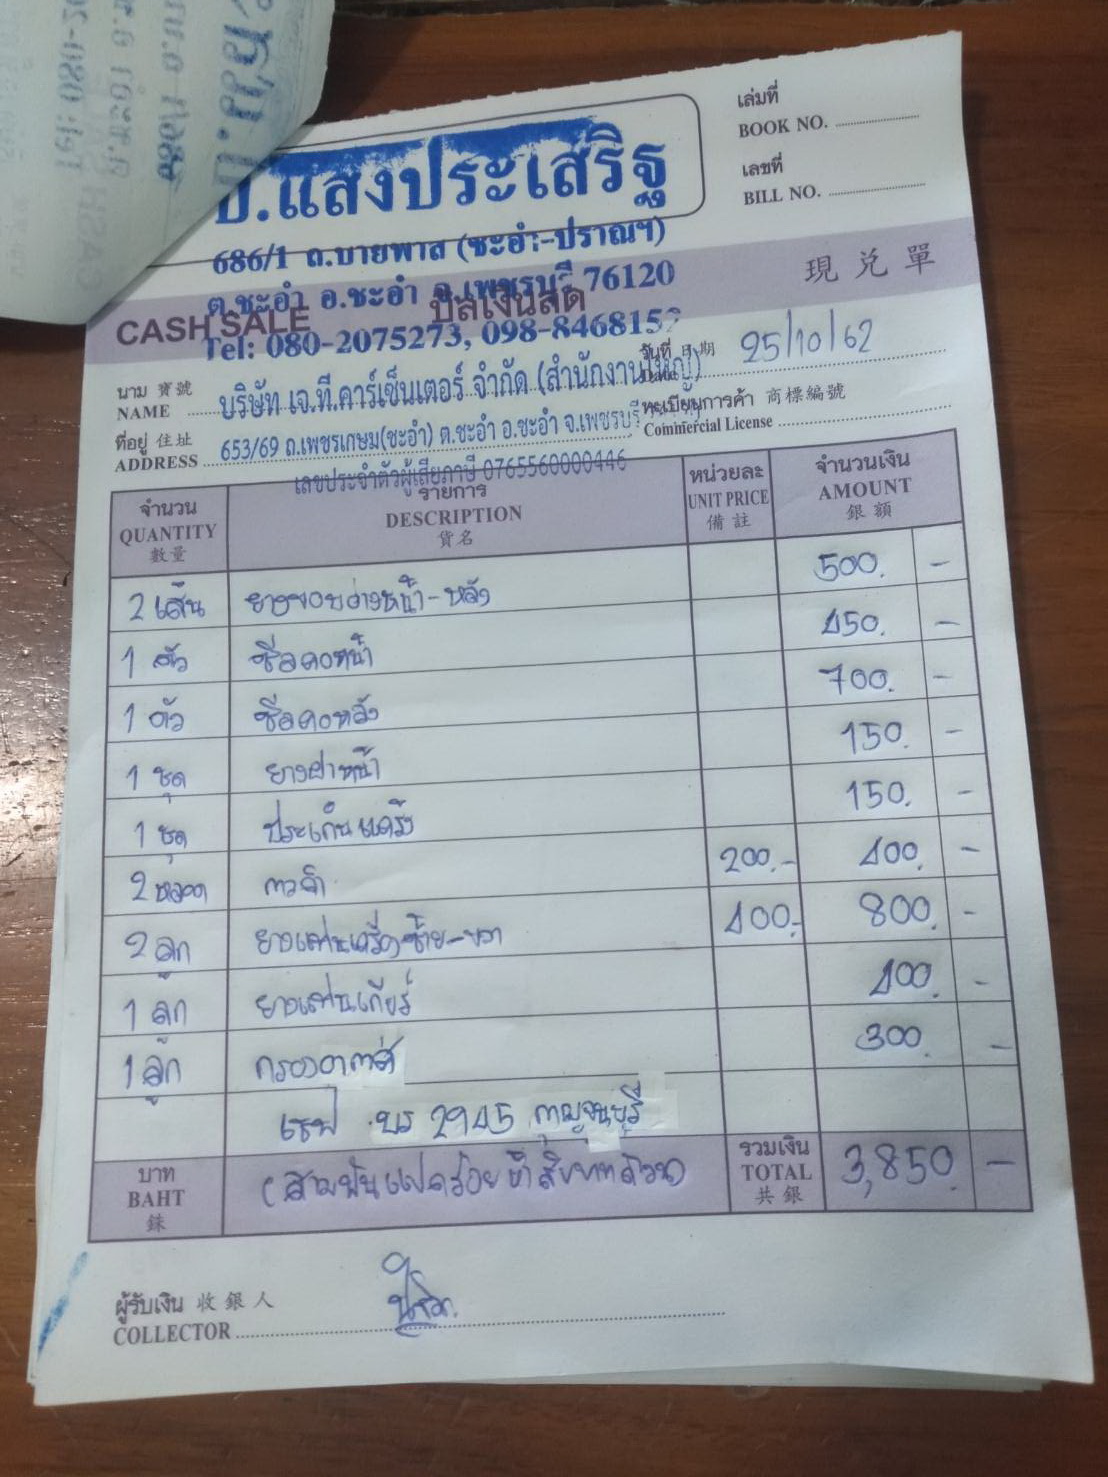 ป.แสงประเสริฐ
686/1 ถ.บายพาส (ชะอำ-ปราณฯ)
ต.ชะอำ อ.ชะอำ จ.เพชรบุรี 76120
Tel: 080-2075273, 098-846815
เล่มที่
BOOK NO.
เลขที่
BILL NO.
CASH SALE บิลเงินสด 現兌單
วันที่ 日期 25/10/62
Date
นาม 寶號
NAME บริษัท เจ.ที.คาร์เซ็นเตอร์ จำกัด (สำนักงานใหญ่)
ทะเบียนการค้า 商標編號
Commercial License
ที่อยู่ 住址
ADDRESS 653/69 ถ.เพชรเกษม(ชะอำ) ต.ชะอำ อ.ชะอำ จ.เพชรบุรี
เลขประจำตัวผู้เสียภาษี 0765560000446
จำนวน รายการ หน่วยละ จำนวนเงิน
QUANTITY DESCRIPTION UNIT PRICE AMOUNT
數量 貨名 備註 銀額
2 เส้น ยางขอบอ่างหน้า-หลัง 500. -
1 ตัว ซีลคอหน้า 450. -
1 ตัว ซีลคอหลัง 700. -
1 ชุด ยางฝาหน้า 150. -
1 ชุด ประเก็นแคร้ง 150. -
2 หลอด กาวดำ 200.- 400. -
2 ลูก ยางแท่นเครื่องซ้าย-ขวา 400.- 800. -
1 ลูก ยางแท่นเกียร์ 400. -
1 ลูก กรองอากาศ 300. -
เชฟ บร 2945 กาญจนบุรี
บาท
BAHT
銖
(สามพันแปดร้อยห้าสิบบาทถ้วน)
รวมเงิน
TOTAL
共銀
3,850. -
ผู้รับเงิน 收銀人
COLLECTOR